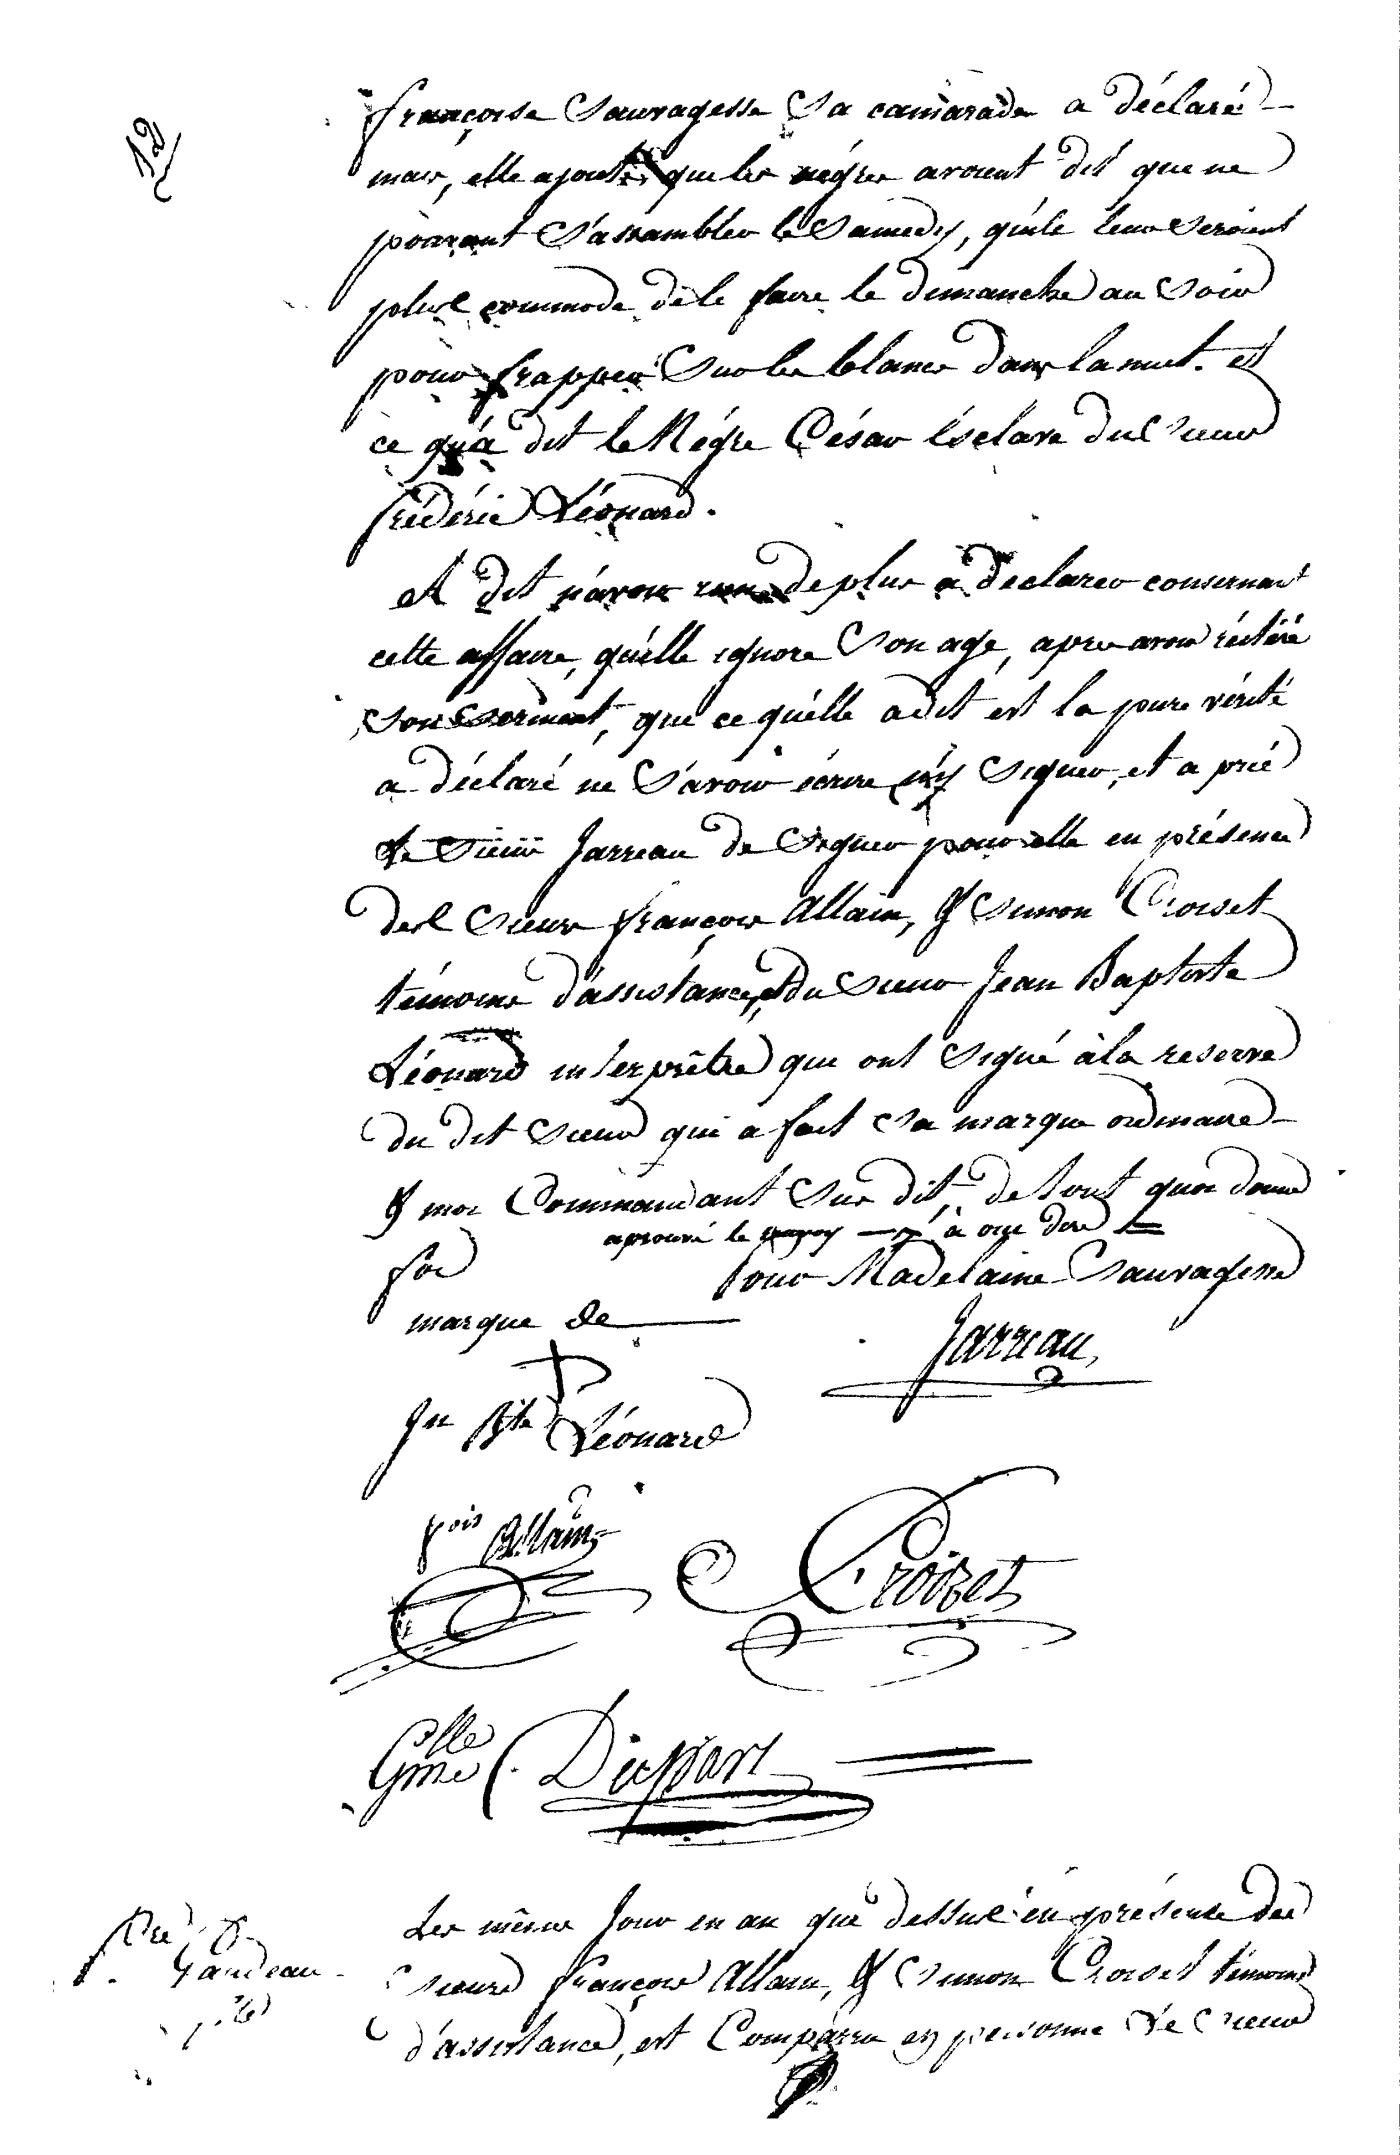 12
françoise Sauvagesse Sa camarade a déclaré
mais, elle ajoute que les négres avoient dit que ne
pouvant S'assambler le Samedy, qu'ils leur Seroient
plus commode de le faire le dimanche au Soir
pour frapper Sur les blancs dans la nuit. et
ce qu'a dit le Négre César Esclave du Sieur
fréderic Léonard.
A dit n'avoir rien de plus a declarer consernant
cette affaire, qu'elle ignore Son age, apres avoir réitéré
Son Serment, que ce qu'elle a dit est la pure vérité
a déclaré ne Savoir écrire n'y Signer, et a prié
Le Sieur Jarreau de Signer pour elle en présence
des Sieurs françois Allain, & Simon Croiset
témoins d'assistance, et du Sieur Jean Baptiste
Léonard interprêtre que ont Signé à la reserve
du dit Sieur qui a fait Sa marque ordinaire
& moi Commandant Sus dit, de tout quoi donné
aprouvé le à one dire
foi pour Madelaine Sauvagesse
marque de Jarreau,
Jn Bte Léonard
fçois Allain
Croizet
Gme Dupart
Les même Jour en an que dessus en présence des
Sieurs françois Allain, & Simon Croiset témoins
d'assistance, est Comparru en personne Le Sieur